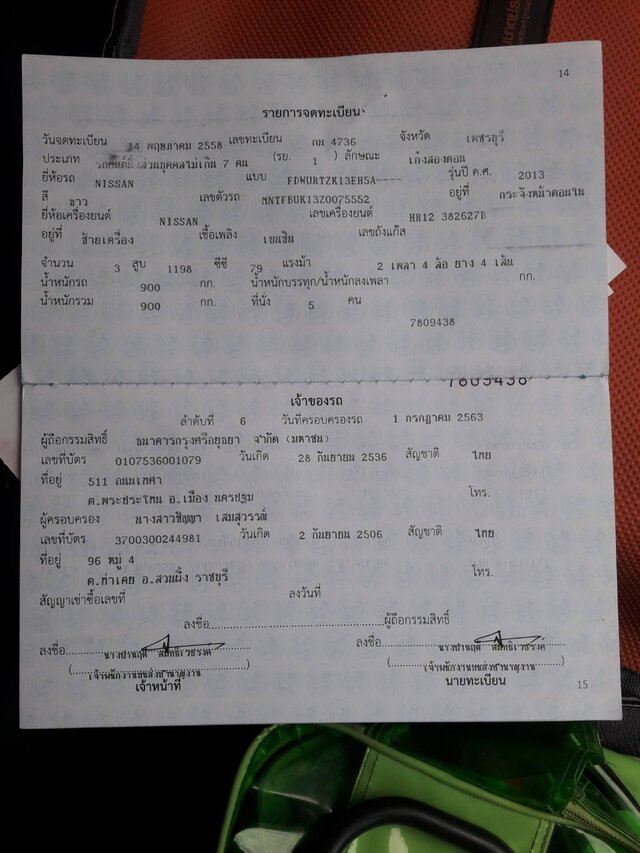 14
รายการจดทะเบียน
วันจดทะเบียน 14 พฤษภาคม 2558 เลขทะเบียน กน 4736 จังหวัด เพชรบุรี
ประเภท รถยนต์นั่งส่วนบุคคลไม่เกิน 7 คน (รย. 1 ) ลักษณะ เก๋งสองตอน
ยี่ห้อรถ NISSAN แบบ FDWURTZK13EH5A---- รุ่นปี ค.ศ. 2013
สี ขาว เลขตัวรถ MNTFBUK13Z0075552 อยู่ที่ กระจังหน้าตอนใน
ยี่ห้อเครื่องยนต์ NISSAN เลขเครื่องยนต์ HR12 382627B
อยู่ที่ ซ้ายเครื่อง เชื้อเพลิง เบนซิน เลขถังแก๊ส
จำนวน 3 สูบ 1198 ซีซี 79 แรงม้า 2 เพลา 4 ล้อ ยาง 4 เส้น
น้ำหนักรถ 900 กก. น้ำหนักบรรทุก/น้ำหนักลงเพลา กก.
น้ำหนักรวม 900 กก. ที่นั่ง 5 คน
7809438
7809438
เจ้าของรถ
ลำดับที่ 6 วันที่ครอบครองรถ 1 กรกฎาคม 2563
ผู้ถือกรรมสิทธิ์ ธนาคารกรุงศรีอยุธยา จำกัด (มหาชน)
เลขที่บัตร 0107536001079 วันเกิด 28 กันยายน 2536 สัญชาติ ไทย
ที่อยู่ 511 ถนนเทศา
ต.พระประโทน อ.เมือง นครปฐม โทร.
ผู้ครอบครอง นางสาวชัญญา เสมสุวรรณ์
เลขที่บัตร 3700300244981 วันเกิด 2 กันยายน 2506 สัญชาติ ไทย
ที่อยู่ 96 หมู่ 4
ต.ท่าเคย อ.สวนผึ้ง ราชบุรี โทร.
สัญญาเช่าซื้อเลขที่ ลงวันที่
ลงชื่อ ผู้ถือกรรมสิทธิ์
ลงชื่อ ลงชื่อ
เจ้าพนักงานขนส่งชำนาญงาน เจ้าพนักงานขนส่งชำนาญงาน
เจ้าหน้าที่ นายทะเบียน
15